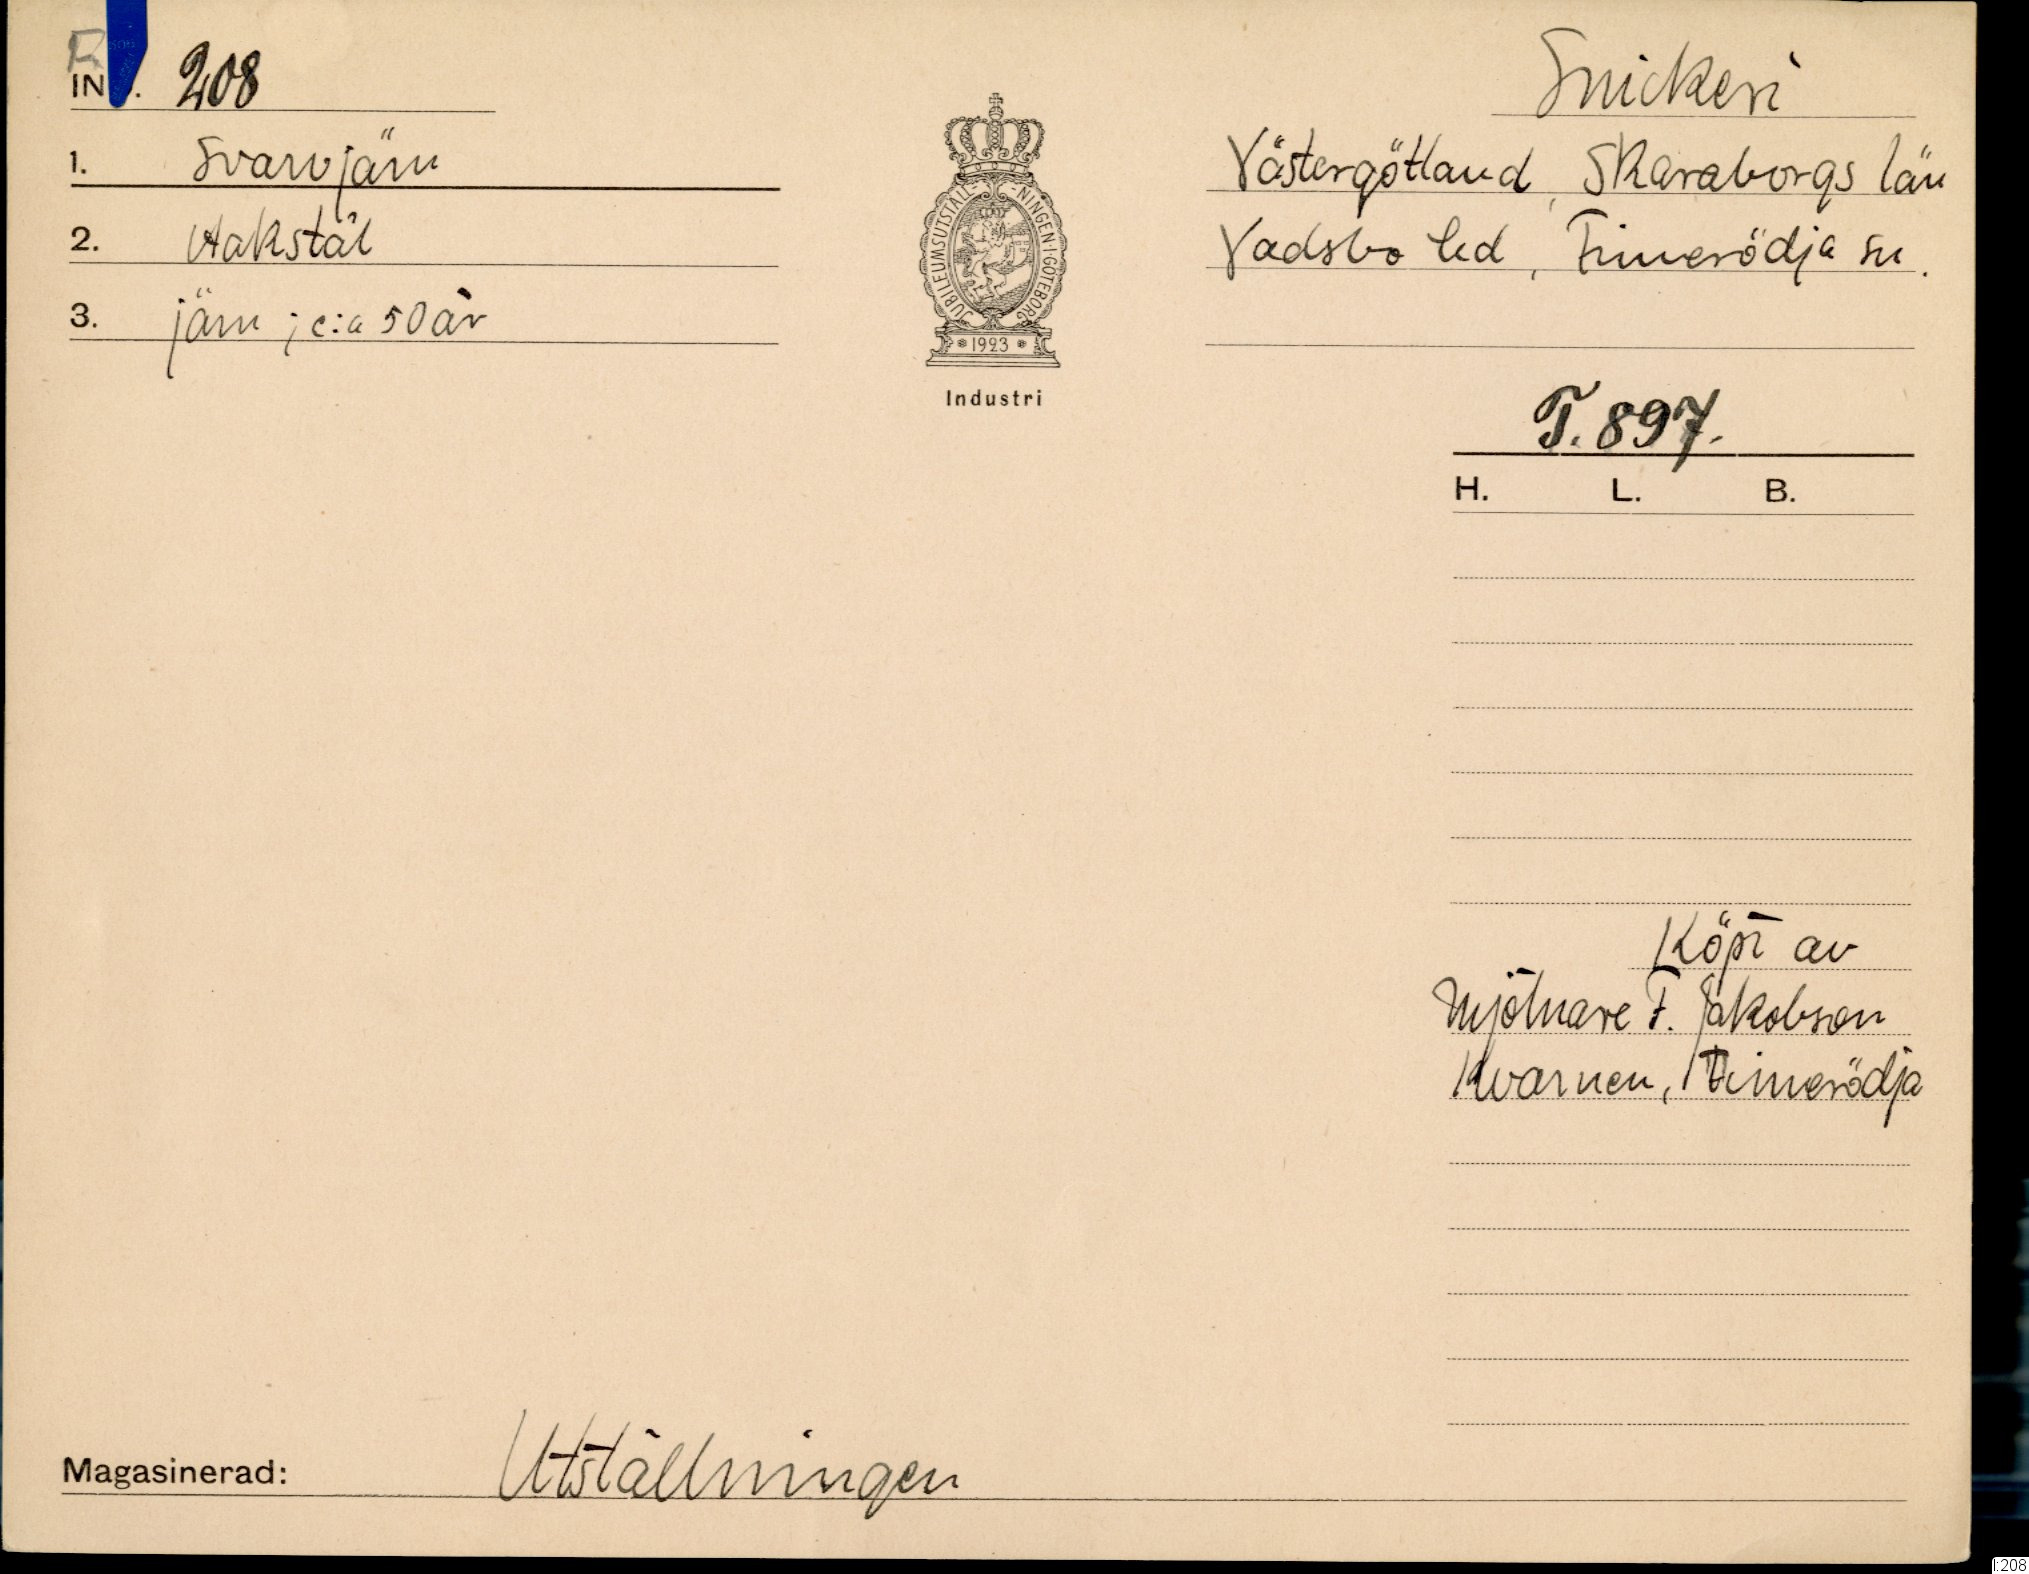 F.
IN . 208
Snickeri
1. Svarvjärn
Västergötland, Skaraborgs län
2. Hakstål
Vadsbo hd, Finnerödja sn.
3. järn ; c:a 50 år
JUBILEUMSUTSTÄLL-NINGEN·I·GÖTEBORG
1923
Industri
T. 897.
H. L. B.
Köpt av
Mjölnare F. Jakobson
Kvarnen, Finnerödja
Magasinerad: Utställningen
:208